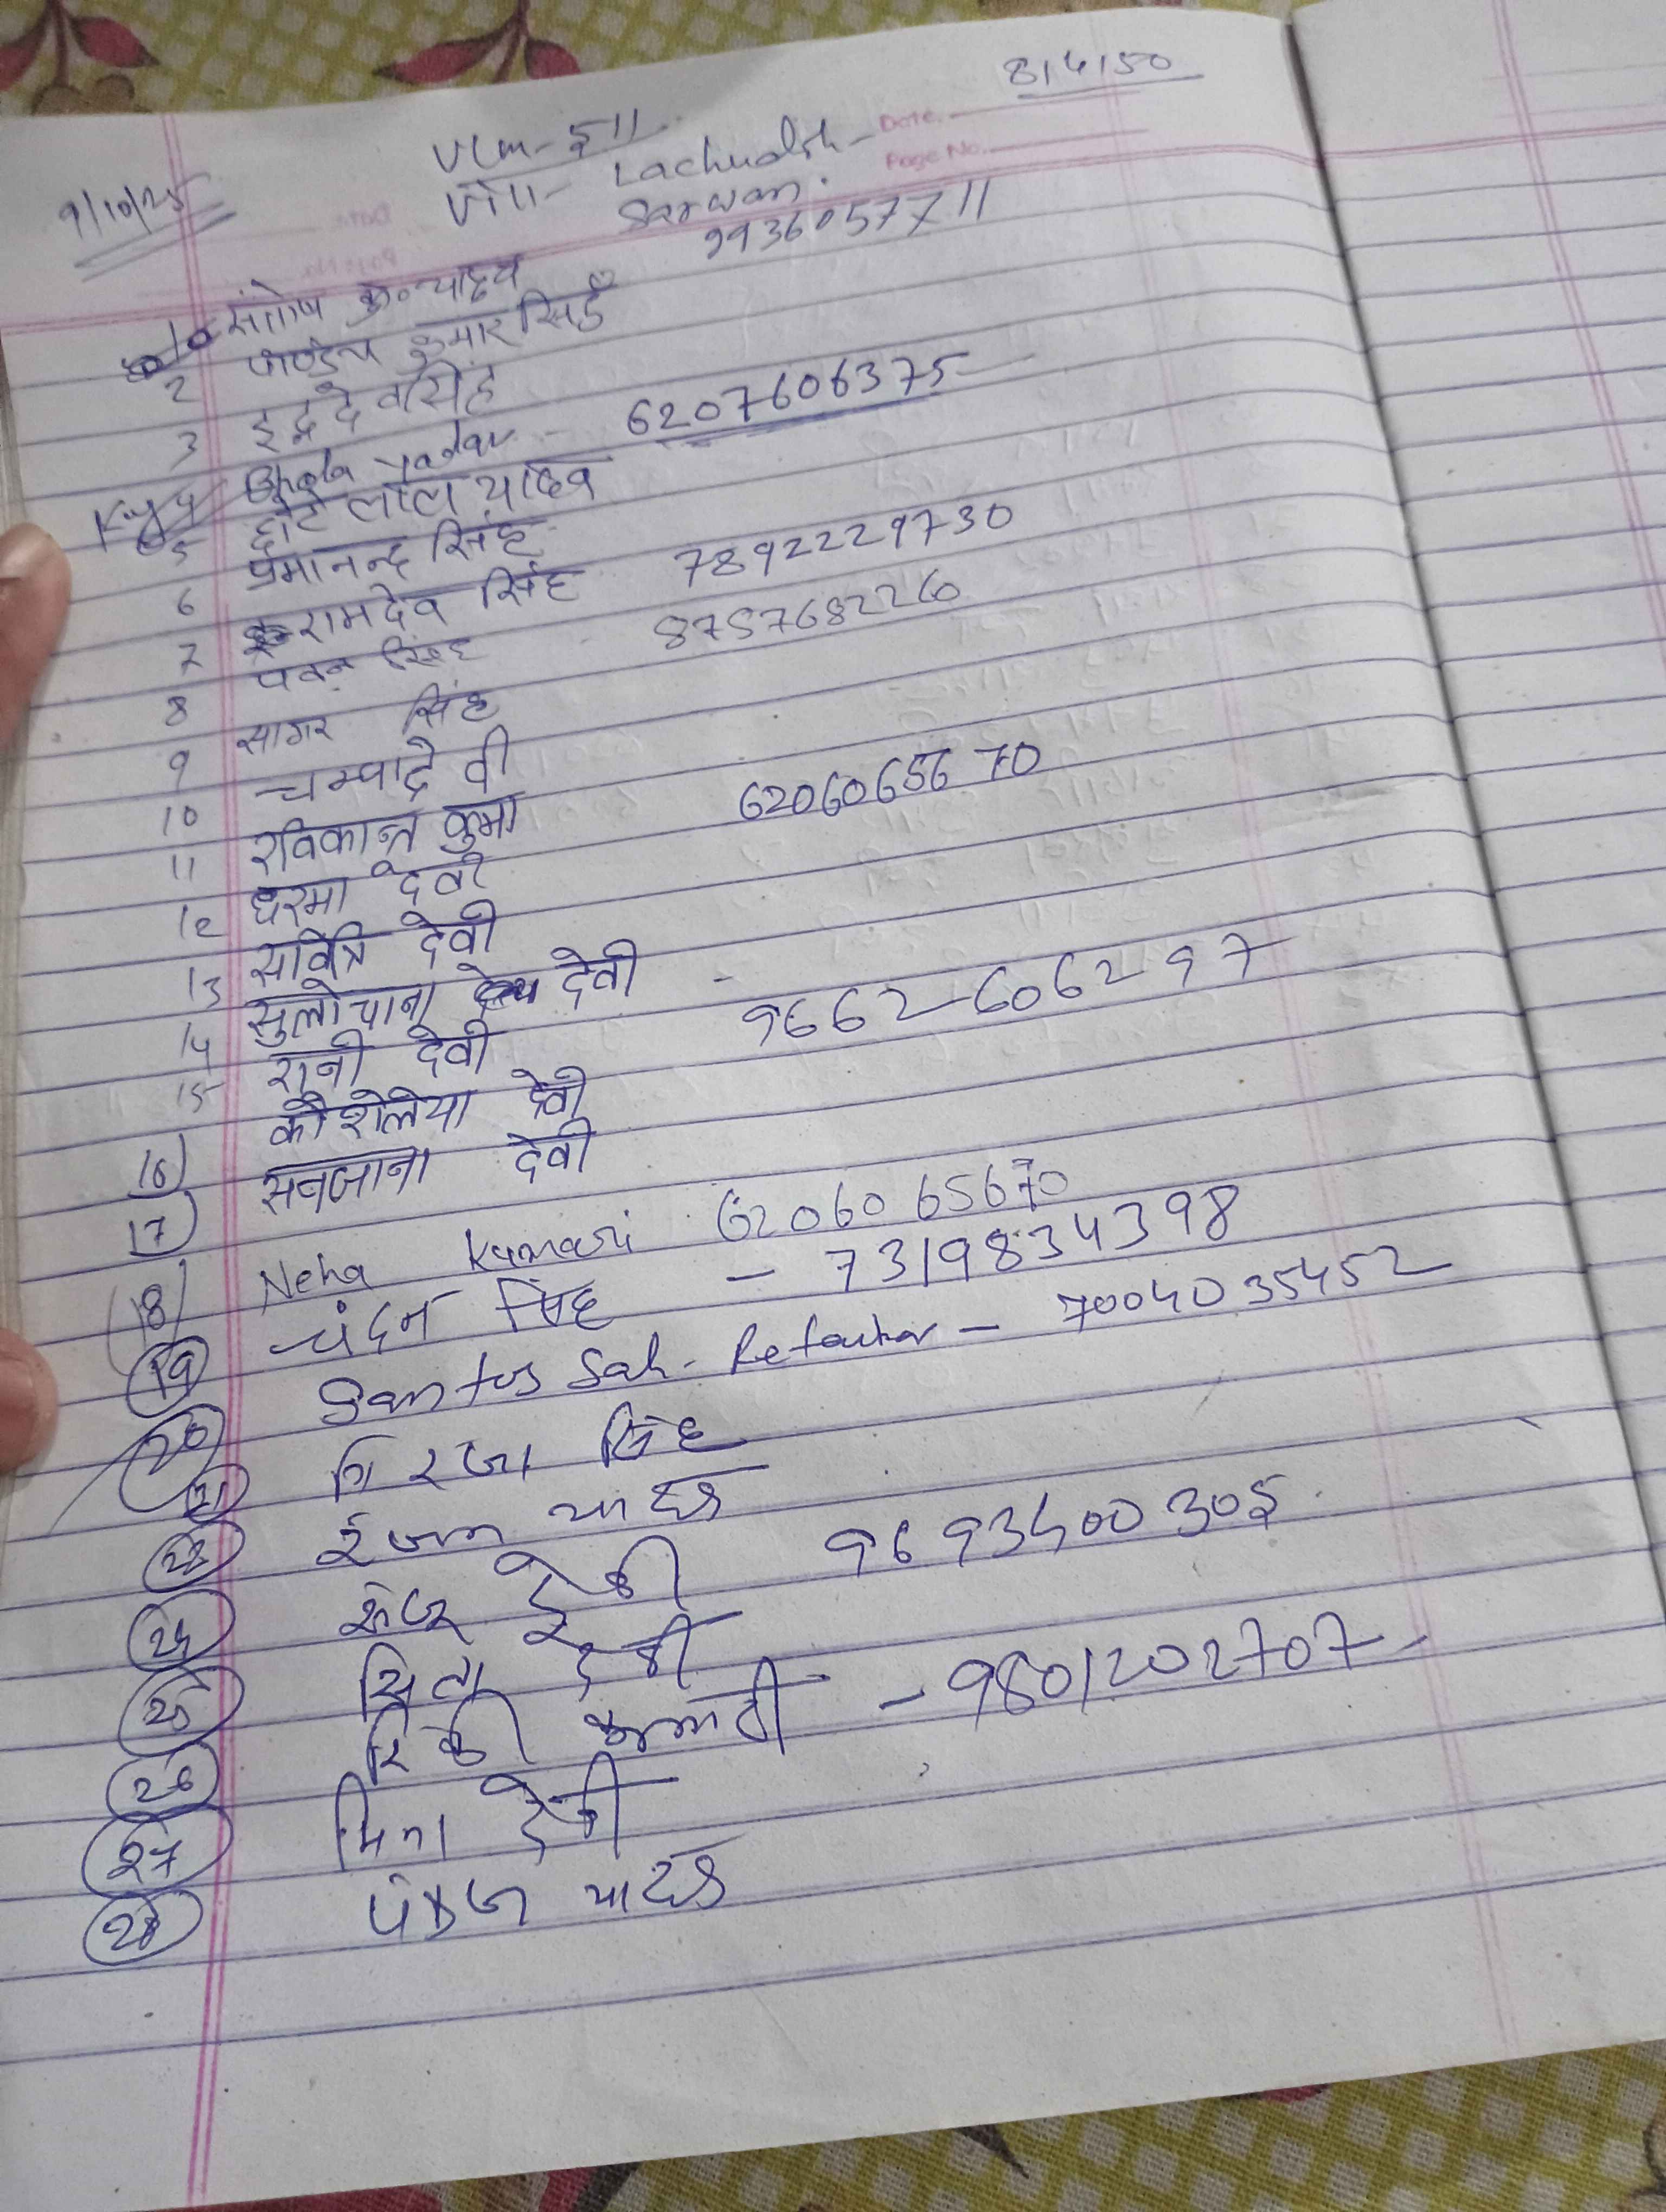 814150
9/10/25
Vlm-511
Date.
Vill- Lachudih-
Page No.
Sarwan.
9936057711
1 संतोष कु० यादव
2 पाण्डव कुमार सिंह
3 इद्रदेव सिंह
4 Bhola Yadav - 6207606375
5 छोटे लाल यादव
6 प्रमानन्द सिंह
7 रामदेव सिंह 7892229730
8 पवन सिंह 8787682260
9 सागर सिंह
10 चम्पा देवी
11 रविकान्त कुमा 6206065670
12 धरमा देवी
13 सवित्रि देवी
14 सुलोचाना देवी -
15 रानी देवी 9662606297
16) कौशेलेया देवी
17) सनजाना देवी
(18) Neha Kumari 6206065670
(19) चंदन सिंह - 7319834398
20 Santus Sah - - 7004035452
21 गिरजा सिंह
22 रंजन यादव
24 देवी 9693400305
25 सिता देवी
26 रिंकी कुमारी - 9801202707
27 मिना देवी
28 पंकज यादव